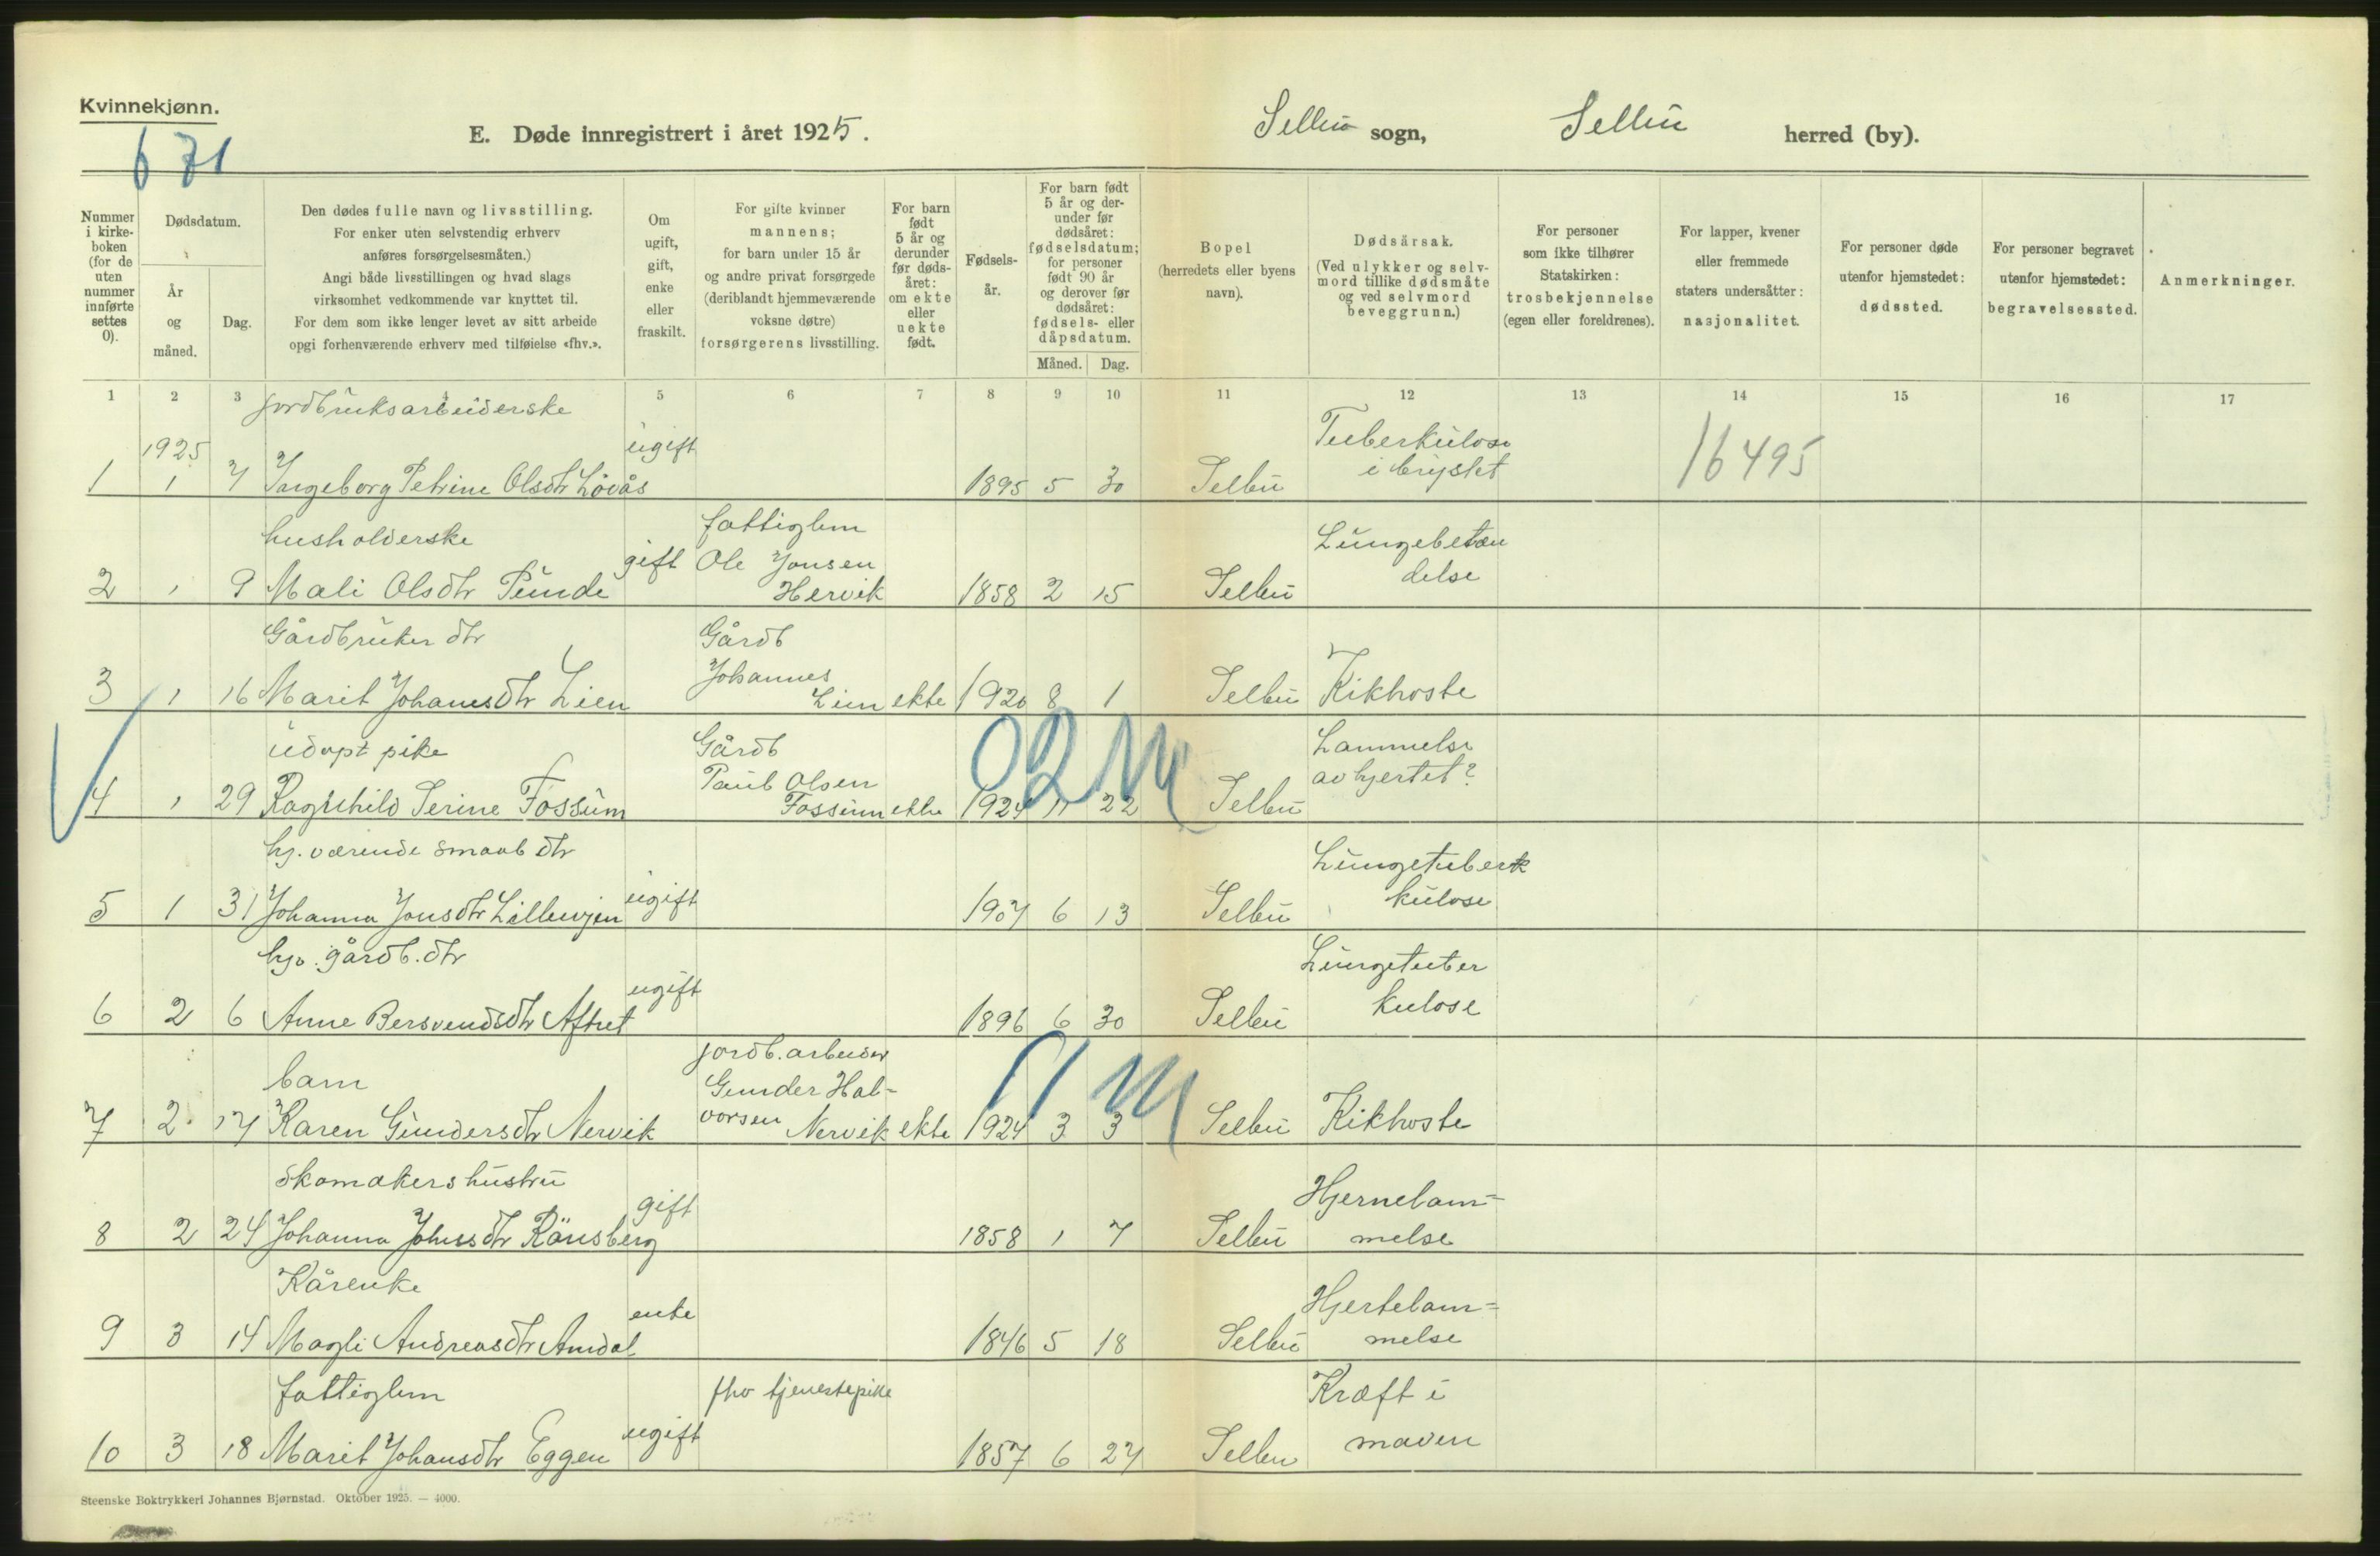 Kvinnekjønn.
671
E. Døde innregistrert i året 1925.
Selbu sogn, Selbu herred (by).
Nummer i kirke-boken (for de uten nummer innførte settes 0).
Dødsdatum.
År og måned.
Dag.
Den dødes fulle navn og livsstilling.
For enker uten selvstendig erhverv
anføres forsørgelsesmåten.)
Angi både livsstillingen og hvad slags
virksomhet vedkommende var knyttet til.
For dem som ikke lenger levet av sitt arbeide
opgi forhenværende erhverv med tilføielse «fhv.».
Om ugift, gift, enke eller fraskilt.
For gifte kvinner
mannens;
for barn under 15 år
og andre privat forsørgede
(deriblandt hjemmeværende
voksne døtre)
forsørgerens livsstilling.
For barn født 5 år og derunder før døds-året: om ekte eller uekte født.
Fødsels-år.
For barn født 5 år og der-under før dødsåret: fødselsdatum; for personer født 90 år og derover før dødsåret: fødsels- eller dåpsdatum.
Måned. Dag.
Bopel
(herredets eller byens
navn).
Dødsårsak.
(Ved ulykker og selv-
mord tillike dødsmåte
og ved selvmord
beveggrunn.)
For personer
som ikke tilhører
Statskirken:
trosbekjennelse
(egen eller foreldrenes).
For lapper, kvener
eller fremmede
staters undersåtter:
nasjonalitet.
For personer døde
utenfor hjemstedet:
dødssted.
For personer begravet
utenfor hjemstedet:
begravelsessted.
Anmerkninger.
1 2 3 5 6 7 8 9 10 11 12 13 14 15 16 17
jordbruksarbeiderske
1925 ugift Tuberkulose
1 1 7 Ingeborg Petrine Olsdtr Lövås 1895 5 30 Selbu i brystet 16495
husholderske fattiglem Lungebetæn
gift Ole Jonsen
2 1 9 Mali Olsdtr Hervik 1858 2 15 Selbu delse
Gårdbruker dtr Gårdb
Johannes
3 1 16 Marit Johansdtr Lien Lien ekte 1920 8 1 Selbu Kikhoste
udøpt pike Gårdb 02 M Lammelse
Paul Olsen av hjertet?
4 1 29 Ragnhild Serine Fossum Fossum ekte 1924 11 22 Selbu
hj. værende smaab dtr Lungetuberk
5 1 31 Johanna Jonsdtr ugift 1907 6 13 Selbu kulose
hjv. gårdb. dtr Lungetuber
6 2 6 Anne Bersvendsdtr Aftret ugift 1896 6 30 Selbu kulose
jordb. arbeider
barn Gunder Hal= 11 M
7 2 17 Karen Gundersdtr Nervik vorsen Nervik ekte 1924 3 3 Selbu Kikhoste
skomakers hustru Hjernelam=
8 2 24 Johanna Johnsdtr Rönsberg gift 1858 1 7 Selbu melse
Kårenke Hjertelam=
9 3 14 Magli Andreasdtr Amdal enke 1846 5 18 Selbu melse
fattiglem fhv tjenestepike Kræft i
10 3 18 Marit Johansdtr Eggen ugift 1857 6 27 Selbu maven
Steenske Boktrykkeri Johannes Bjørnstad. Oktober 1925. — 4000.